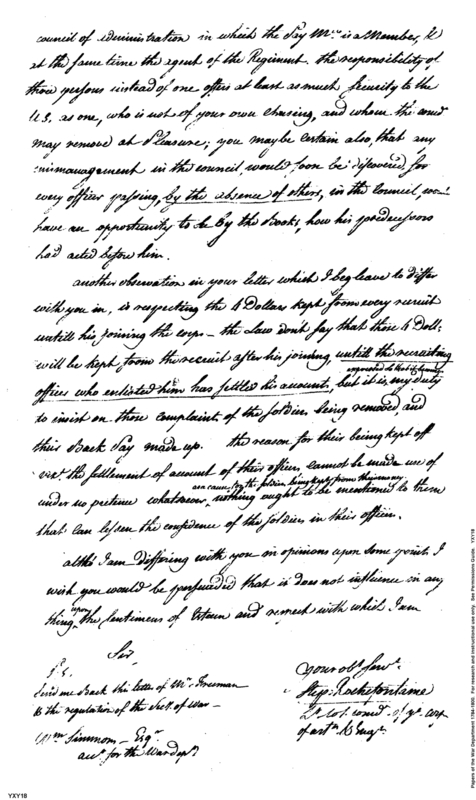 council of administration in which the Pay Mr. is a Member, &
at the same time the agent of the Regiment the responsibility of
three persons instead of one offers at least as much Security to the
U.S. as one, who is not of your own chusing, and whom the
may remove at Pleasure; you may be certain also, that any
mismanagement in the council would soon be discovered, for
every officer passing, by the absence of others, in the Council,
have an opportunity to be by the Books, how his predecessors
had acted before him.
another observation in your letter which I beg leave to differ
with you in, is respecting the 4 Dollars kept from every recruit
untill his joining the corps – the Law dont say that those 4 Doll:
will be kept from the recruit after his joining, untill the recruiting
officer who enlisted him has settled his account, but it is, my duty
to insist on those complaint of the Soldier being removed and
their Back Pay made up. the reason for their being kept off
vizt. the settlement of account of their officer cannot be made use of
as a cause, for the soldier being kept from their money
under no pretence whatsoever, nothing ought to be mentioned to them
that can lessen the confidence of the soldier in their officer.
altho I am Differing with you in opinions upon some point I
wish you would be persuaded that it does not influence in any
thing upon the Sentimens of Esteem and respect with which I am
Sir
your obt. Servt.
Step: Rochefontaine
Lt. Col. comdt. of ye. corp
of artrs. & Engrs.
P.S.
Send me Back the letter of Mr. Freeman
& the regulation of the Sect. of War –
Wm Simmons – Esqr.
acct. for the War dept
YXY18
Papers of the War Department 1784-1800. For research and instructional use only. See Permissions Guide. YXY18